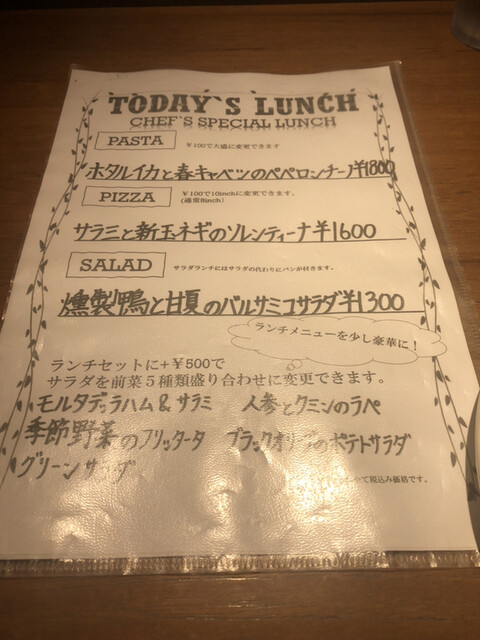 TODAY`S LUNCH
CHEF`S SPECIAL LUNCH
PASTA
￥100で大盛に変更できます
ホタルイカと春キャベツのペペロンチーノ¥1800
PIZZA
￥100で10inchに変更できます。
(通常8inch)
サラミと新玉ネギのソレンティーナ¥1600
SALAD
サラダランチにはサラダの代わりにパンが付きます。
燻製鴨と甘夏のバルサミコサラダ¥1300
ランチメニューを少し豪華に！
ランチセットに＋￥500で
サラダを前菜５種類盛り合わせに変更できます。
モルタデッラハム＆サラミ 人参とクミンのラペ
季節野菜のフリッタータ ブラックオリーブのポテトサラダ
グリーンサラダ
て税込み価格です。